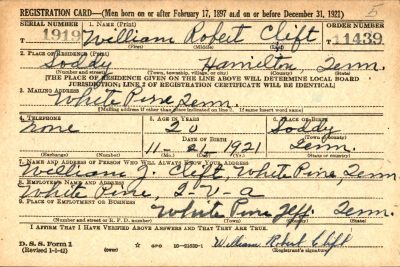 REGISTRATION CARD—(Men born on or after February 17, 1897 and on or before December 31, 1921)
SERIAL NUMBER 1. NAME (Print) ORDER NUMBER
T 1919 William Robert Clift T 11439
(First) (Middle) (Last)
2. PLACE OF RESIDENCE (Print)
Soddy Hamilton Tenn.
(Number and street) (Town, township, village, or city) (County) (State)
[THE PLACE OF RESIDENCE GIVEN ON THE LINE ABOVE WILL DETERMINE LOCAL BOARD
JURISDICTION; LINE 2 OF REGISTRATION CERTIFICATE WILL BE IDENTICAL]
3. MAILING ADDRESS
White Pine Tenn.
[Mailing address if other than place indicated on line 2. If same insert word same]
4. TELEPHONE 5. AGE IN YEARS 6. PLACE OF BIRTH
None 20 Soddy
DATE OF BIRTH (Town or county)
11- 21 1921 Tenn.
(Exchange) (Number) (Mo.) (Day) (Yr.) (State or country)
7. NAME AND ADDRESS OF PERSON WHO WILL ALWAYS KNOW YOUR ADDRESS
William J. Clift White Pine, Tenn
8. EMPLOYER'S NAME AND ADDRESS
White Pine, T-V-a
9. PLACE OF EMPLOYMENT OR BUSINESS
White Pine Jeff. Tenn.
(Number and street or R. F. D. number) (Town) (County) (State)
I AFFIRM THAT I HAVE VERIFIED ABOVE ANSWERS AND THAT THEY ARE TRUE.
D. S. S. Form 1 GPO 16—21630-1 William Robert Clift
(Revised 1-1-42) (Registrant's signature)